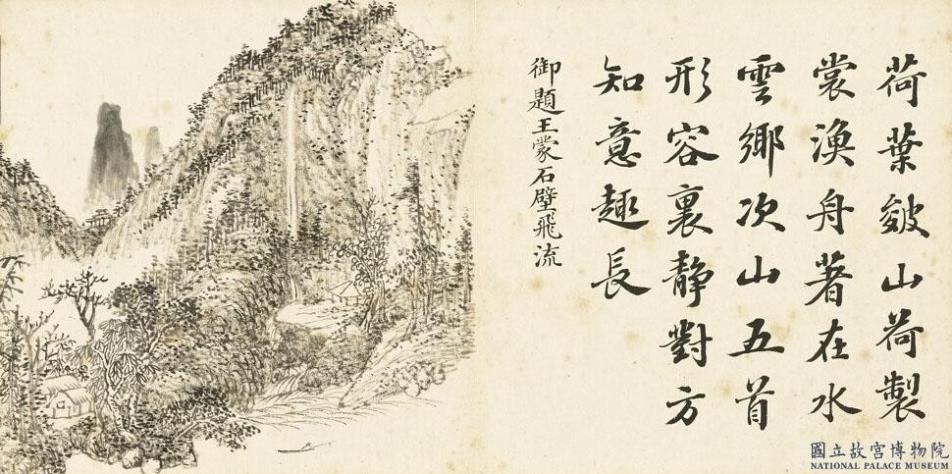 荷葉皴山荷製
裳漁舟著在水
雲鄉次山五首
形容裏靜對方
知意趣長
御題王蒙石壁飛流
國立故宮博物院
NATIONAL PALACE MUSEUM